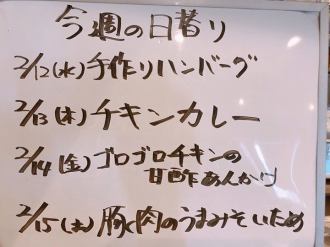 今週の日替り
2/12(水)手作りハンバーグ
2/13(木)チキンカレー
2/14(金)ゴロゴロチキンの
甘酢あんかけ
2/15(土)豚肉のうまみそいため